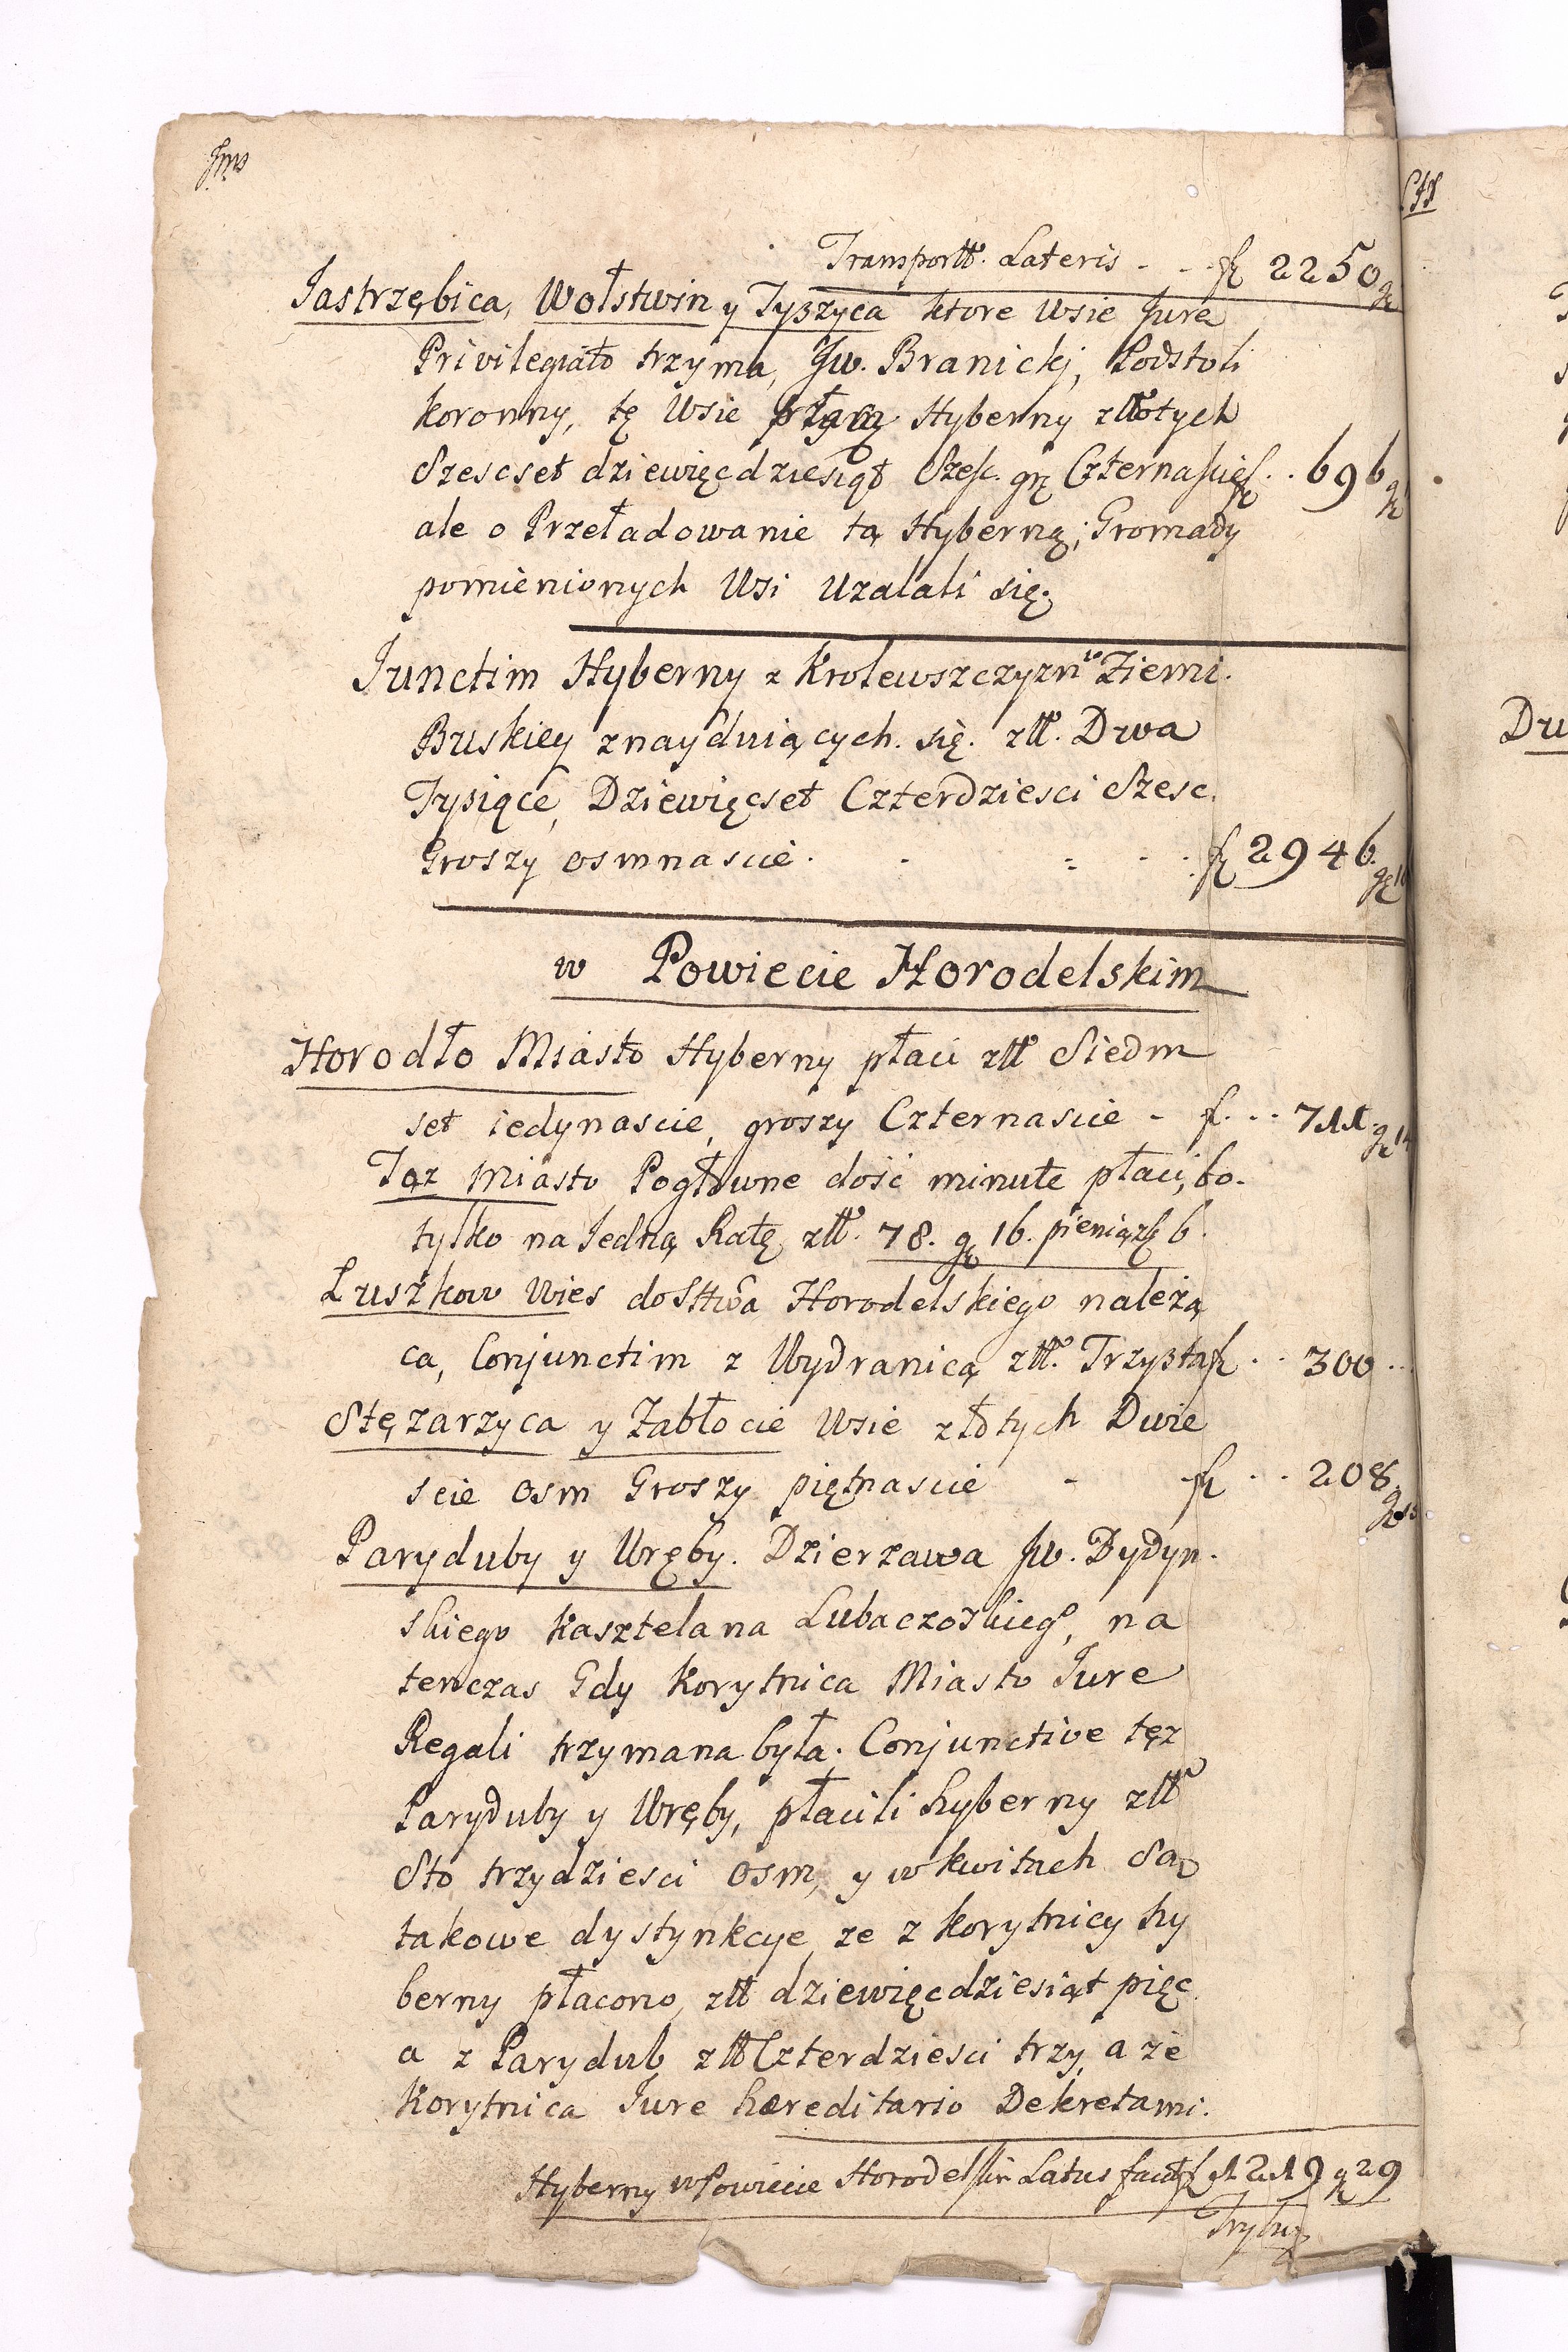 Transportt. Lateris - - fl 2250 g
Jastrzębica, Wołstwin y Tyszyca ktore Wsie Jure
Privilegiato trzyma, Jw. Branickj, Podstoli
koronny, tę Wsie Hyberny złłotych
Szescset dziewięcdziesiąt Szesc. gr Czternascie fl. . 696 gr
ale o Przeładowanie tą Hyberną; Gromady
pomienionych Wsi Uzalali się.
Junctim Hyberny z Krolewszczyzn w Ziemi.
Buskiey znayduiących. się. złł. Dwa
Tysiące, Dziewięcset Czterdziesci Szesc.
Groszy osmnascie. - = - . fl 2946. gr 1
w Powiecie Horodelskim
Horodło Miasto Hyberny płaci złł Siedm
set iedynascie, groszy Czternascie - f. . . 711. gr 14
Toz Miasto Pogłowne dość minute płaci, bo.
tylko na Jedną Ratę złł. 78. gr 16. pieniązk 6.
Łuszkow Wies do Sttwa Horodelskiego należą
ca, Conjunctim z Wydranicą złł. Trzysta fl . . 300 ...
Stęzarzyca y Zabłocie Wsie złotych Dwie
scie osm Groszy piętnascie - fl . . . 208. gr 15
Paryduby y Wręby. Dzierzawa Jw. Dydyn.
skiego Kasztelana Lubaczoskieg°, na
tenczas Gdy Korytnica Miasto Jure
Regali trzymana była. Conjunctive tęz
Paryduby y Wręby, płacili hyberny złł
Sto trzydziesci osm, y w kwitach Są
takowe dystynkcye, ze z Korytnicy hy
berny płacono, złł dziewięcdziesiąt pięc
a z Parydub złł Czterdziesci trzy, a że
Korytnica Jure hæreditario Dekretami.
Hyberny w Powiecie Horodelskim Latus facit fl 1219 gr 29
Drybu